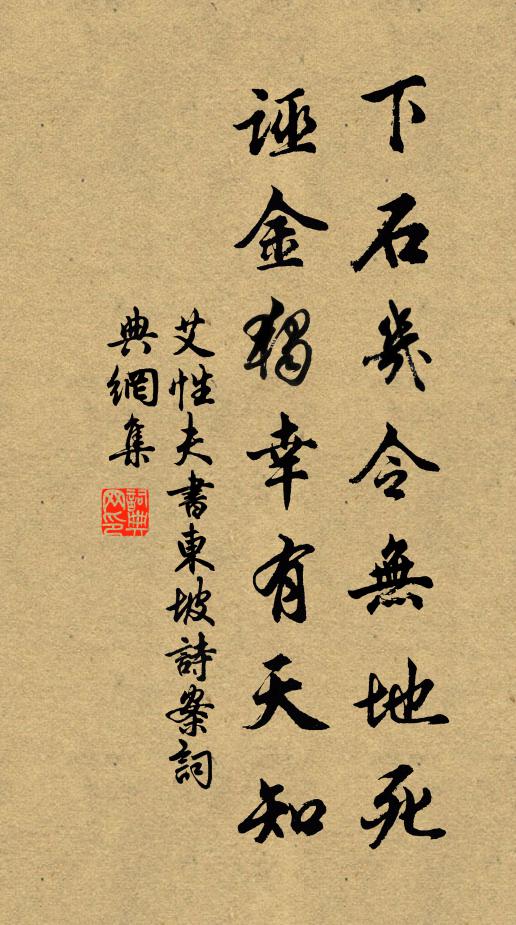 下石幾令無地死
誣金獨幸有天知
艾性夫書東坡詩案詞
典網集
詞典網印